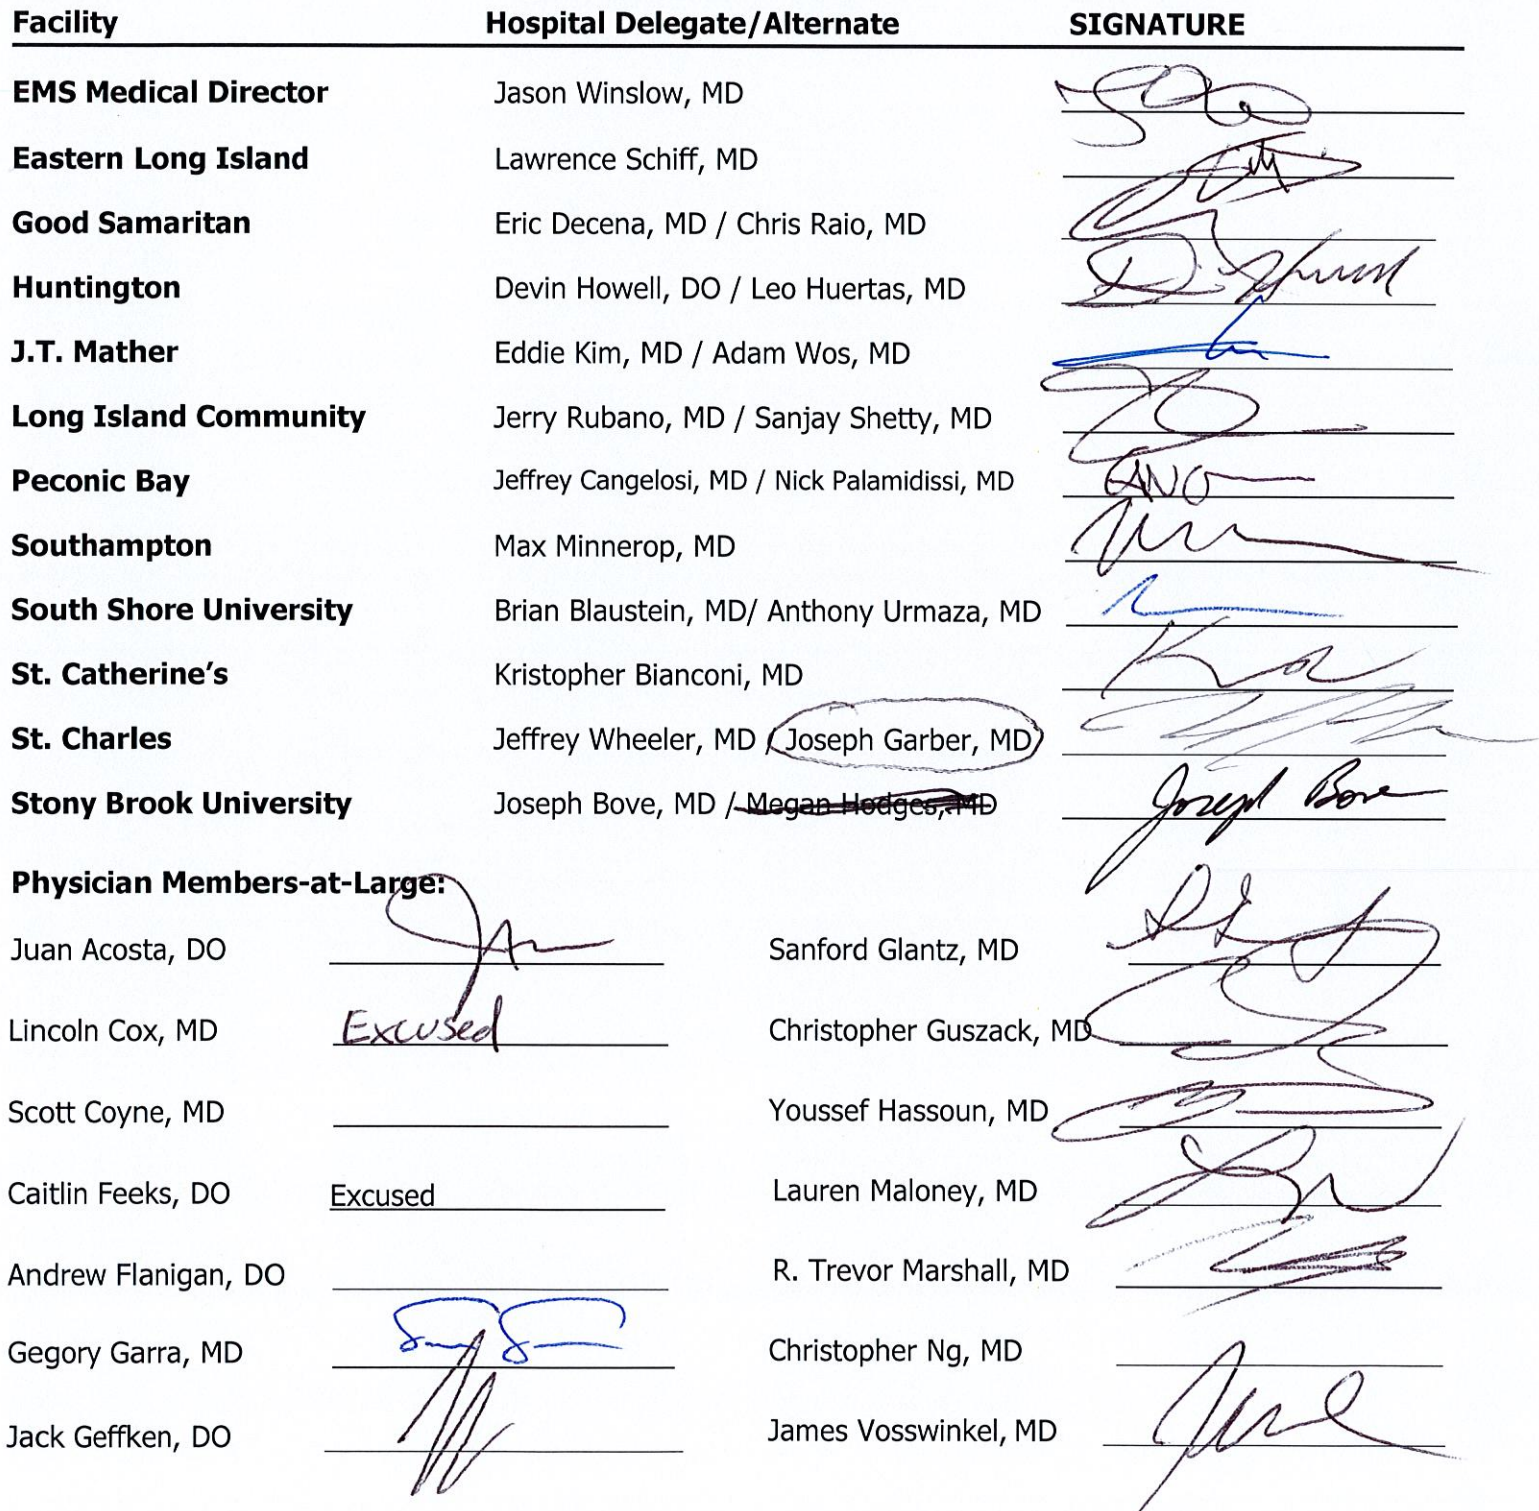 Facility Hospital Delegate/Alternate SIGNATURE
EMS Medical Director Jason Winslow, MD
Eastern Long Island Lawrence Schiff, MD
Good Samaritan Eric Decena, MD / Chris Raio, MD
Huntington Devin Howell, DO / Leo Huertas, MD
J.T. Mather Eddie Kim, MD / Adam Wos, MD
Long Island Community Jerry Rubano, MD / Sanjay Shetty, MD
Peconic Bay Jeffrey Cangelosi, MD / Nick Palamidissi, MD
Southampton Max Minnerop, MD
South Shore University Brian Blaustein, MD/ Anthony Urmaza, MD
St. Catherine’s Kristopher Bianconi, MD
St. Charles Jeffrey Wheeler, MD / Joseph Garber, MD
Stony Brook University Joseph Bove, MD / Megan Hodges, MD Joseph Bove
Physician Members-at-Large:
Juan Acosta, DO Sanford Glantz, MD
Lincoln Cox, MD Excused Christopher Guszack, MD
Scott Coyne, MD Youssef Hassoun, MD
Caitlin Feeks, DO Excused Lauren Maloney, MD
Andrew Flanigan, DO R. Trevor Marshall, MD
Gegory Garra, MD Christopher Ng, MD
Jack Geffken, DO James Vosswinkel, MD